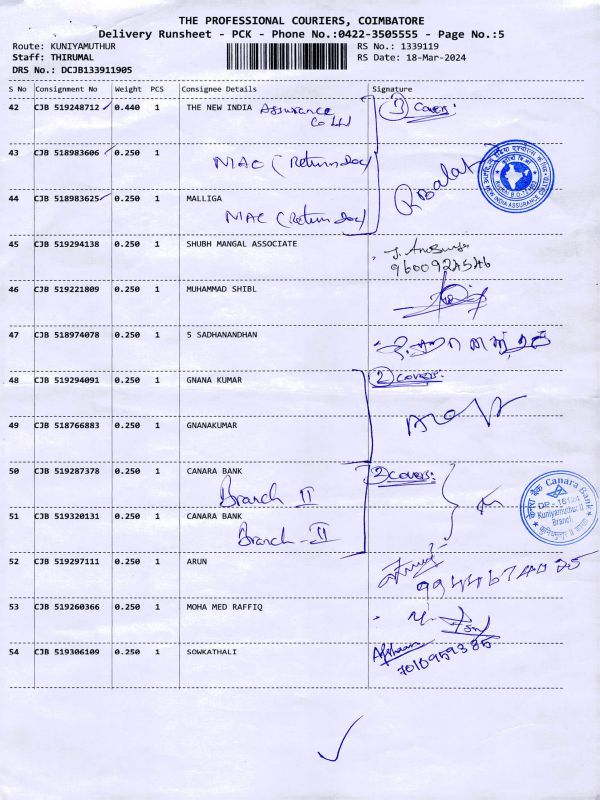 THE PROFESSIONAL COURIERS, COIMBATORE
Delivery Runsheet - PCK - Phone No.:0422-3505555 - Page No.:5
Route: KUNIYAMUTHUR
RS No.: 1339119
Staff: THIRUMAL
RS Date: 18-Mar-2024
DRS No.: DCJB133911905
S No Consignment No Weight PCS Consignee Details Signature
42 CJB 519248712 0.440 1 THE NEW INDIA Assurance Co Ltd 3 Covers:
43 CJB 518983606 0.250 1
MAC (Return Doc)
44 CJB 518983625 0.250 1 MALLIGA
MAC (Return Doc)
45 CJB 519294138 0.250 1 SHUBH MANGAL ASSOCIATE
46 CJB 519221809 0.250 1 MUHAMMAD SHIBL
47 CJB 518974078 0.250 1 S SADHANANDHAN
48 CJB 519294091 0.250 1 GNANA KUMAR 2 Covers:
49 CJB 518766883 0.250 1 GNANAKUMAR
50 CJB 519287378 0.250 1 CANARA BANK 2 Covers:
Branch II
51 CJB 519320131 0.250 1 CANARA BANK
Branch - II
Canara Bank
DP-16124
Kuniyamuthur II
Branch
52 CJB 519297111 0.250 1 ARUN
9944674025
53 CJB 519260366 0.250 1 MOHA MED RAFFIQ
54 CJB 519306109 0.250 1 SOWKATHALI
7010959385